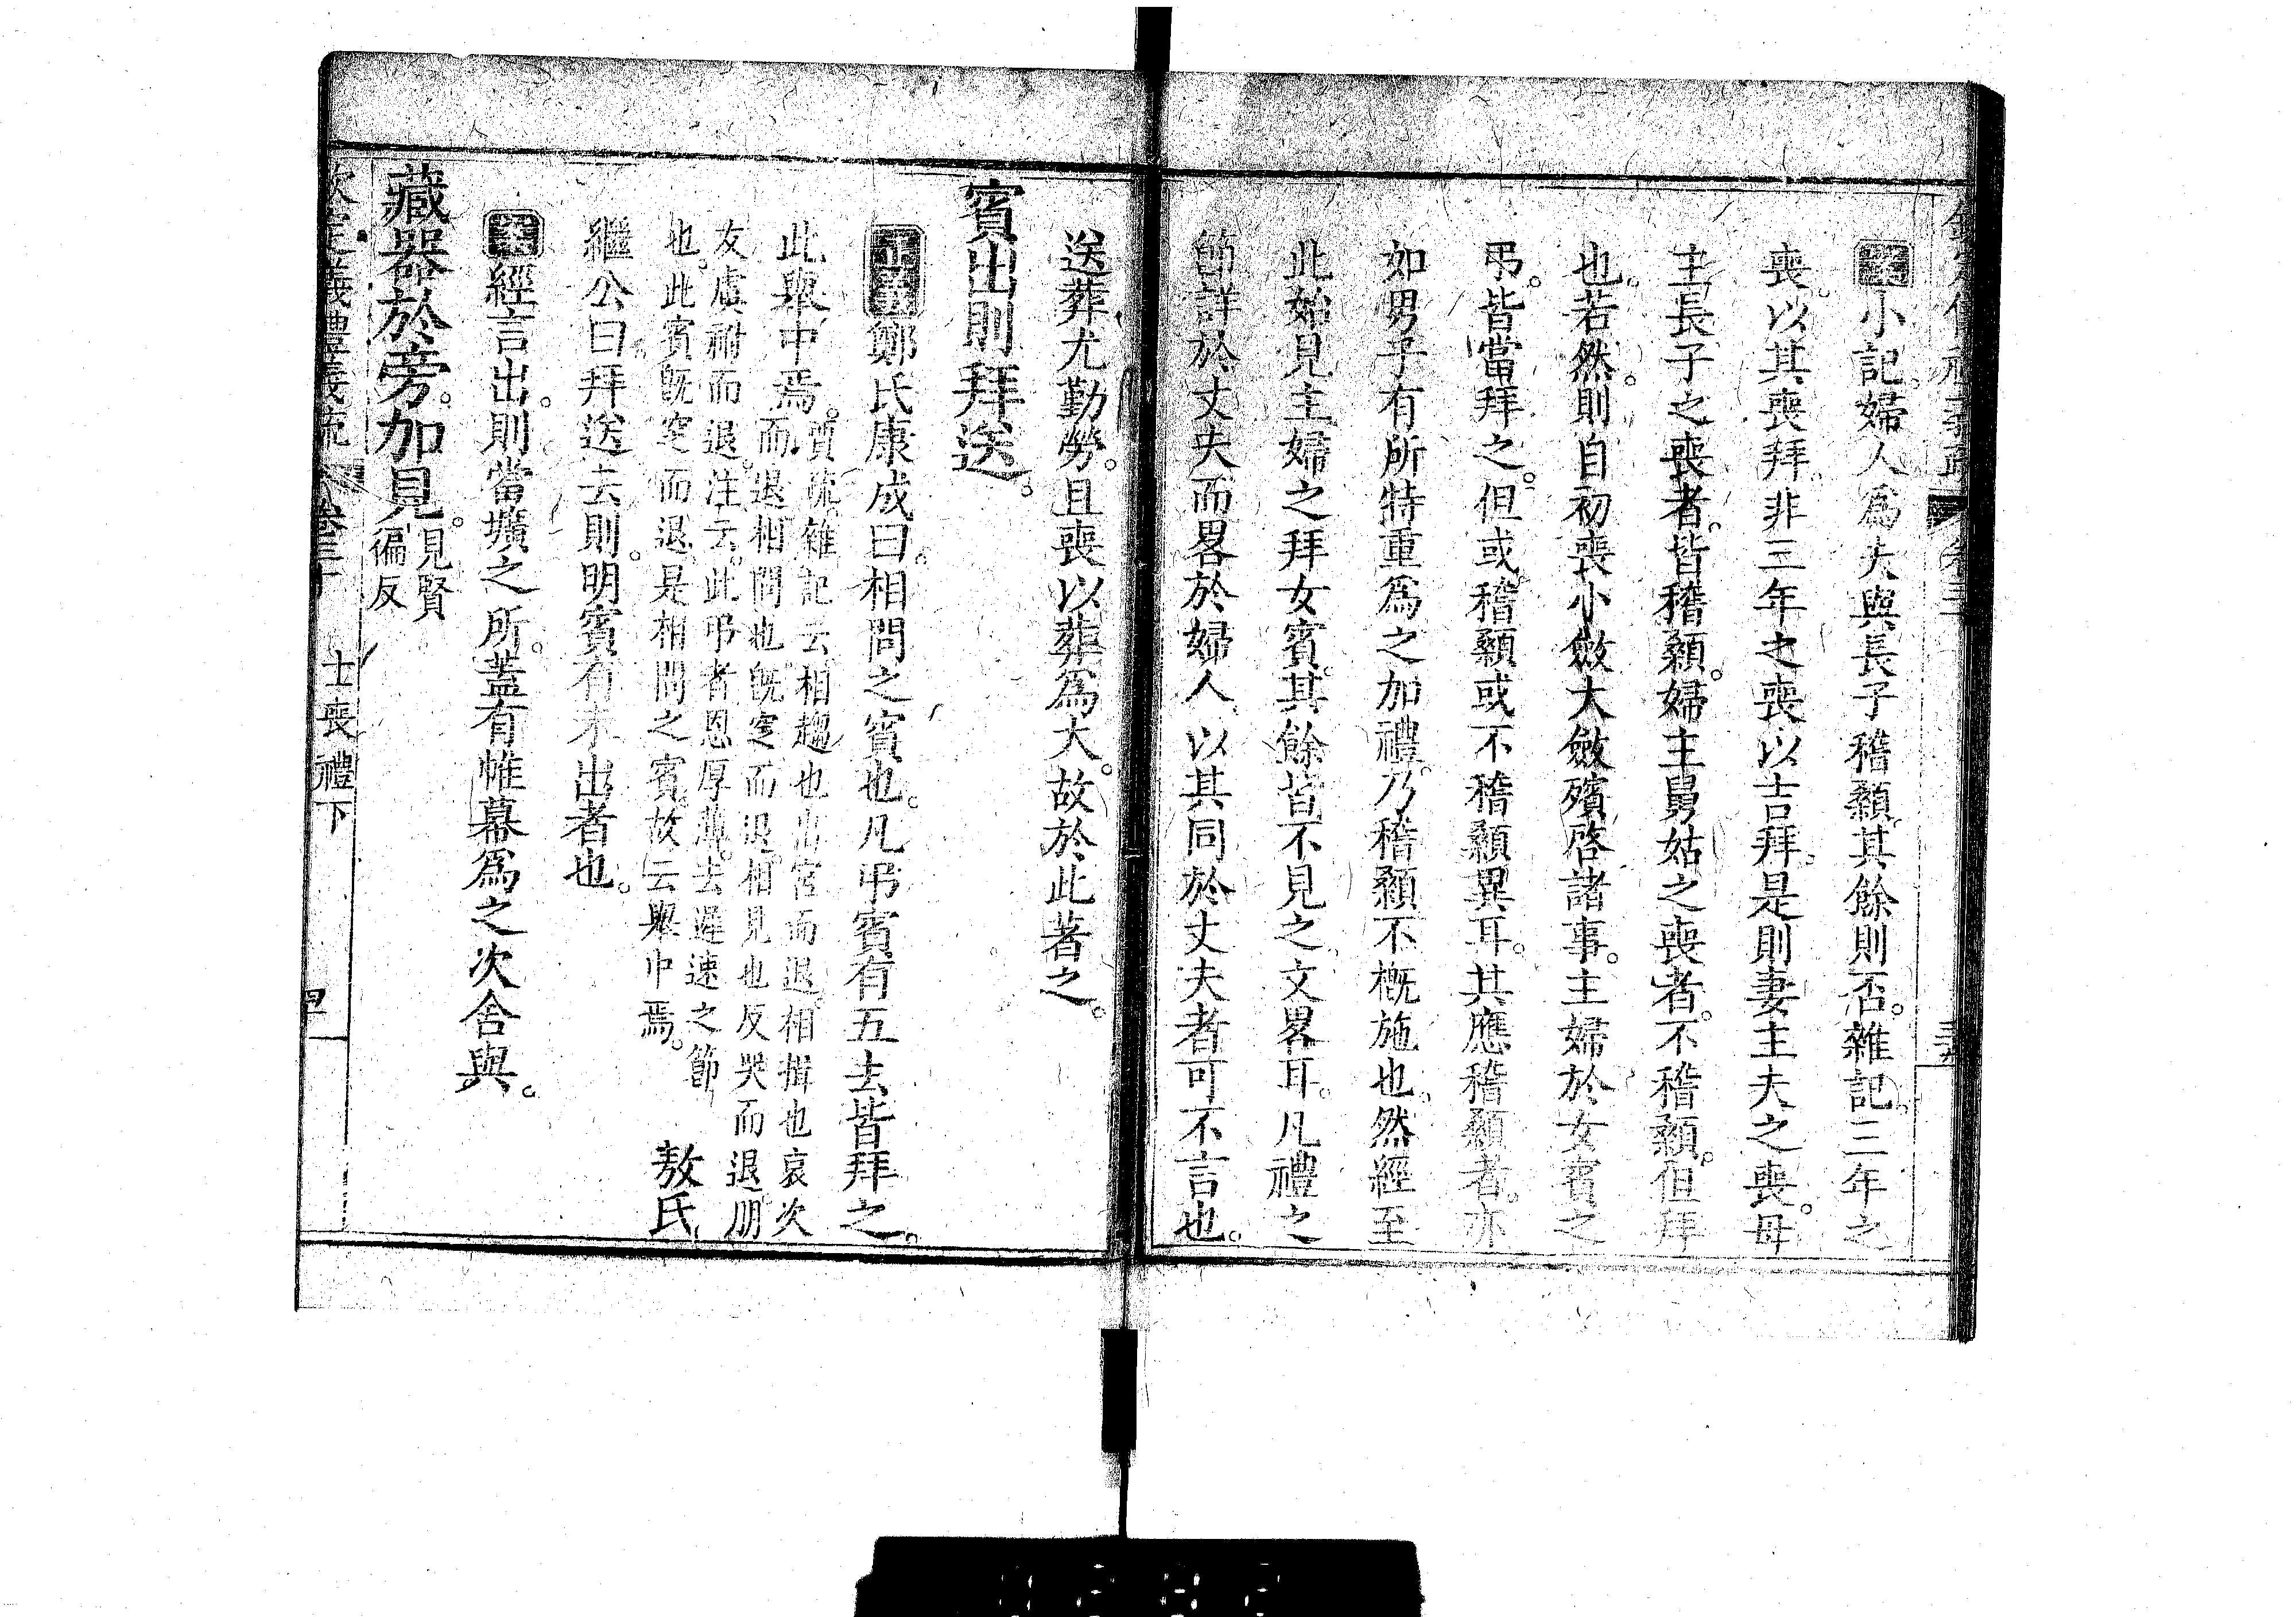 小記婦人爲夫與長子稽顙其餘則否雜記三年之
喪以其喪拜非三年之喪以吉拜是則妻主夫之喪母
主長子之喪者皆稽顙婦主舅姑之喪者不稽顙但拜
也若然則自初喪小斂大斂殯啓諸事主婦於女賓之
弔皆當拜之但或稽顙或不稽顙異耳其應稽顙者亦
如男子有所特重爲之加禮乃稽顙不概施也然經至
此始見主婦之拜女賓其餘皆不見之文畧耳凡禮之
節詳於丈夫而畧於婦人以其同於丈夫者可不言也
送葬尤勤勞且喪以葬爲大故於此著之
賓出則拜送
正義鄭氏康成曰相問之賓也凡弔賓有五去皆拜之
此舉中焉
賈疏雜記云相趨也出宮而退相揖也哀次
而退相問也既窆而退相見也反哭而退朋
友虞祔而退注云此弔者恩厚薄去遲速之節
也此賓既窆而退是相問之賓故云舉中焉
敖氏
繼公曰拜送去則明賓有未出者也
經言出則當壙之所蓋有帷幕爲之次舍與
藏器於旁加見
見賢
徧反
欽定儀禮義疏 卷三十 士喪禮下